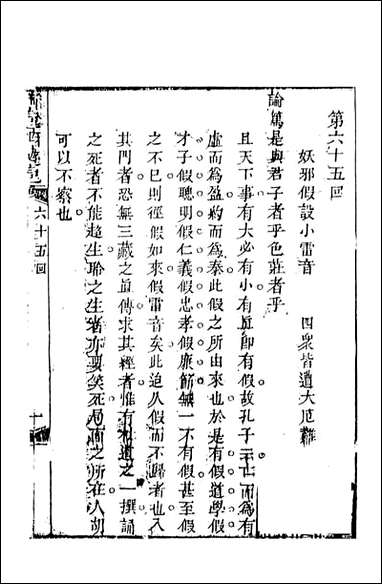 第六十五回
妖邪假設小雷音　四衆皆遭大厄難
論篤是與君子者乎色莊者乎
且天下事有大必有小有眞卽有假故孔子云亡而爲有
虛而爲盈約而爲泰此假之所由來也於是有假道學假
才子假聰明假仁義假忠孝假廉節無一不有假甚至假
之不已則徑假如來假雷音矣此迨人假而不歸者也入
其門者恐無三藏之眞傳求其經者惟有之一撰誦
之死者不能超生聆之生者亦要矣死局之所在人胡
可以不察也
西遊記
六十五回
一